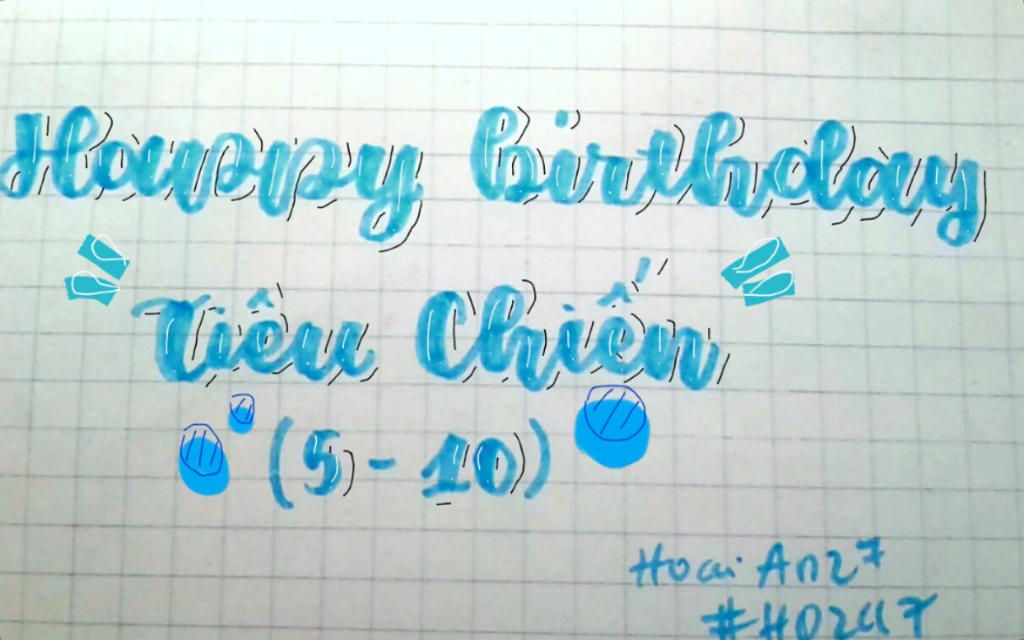 Happy birthday
Tiêu Chiến
(5-10)
Hoai An27